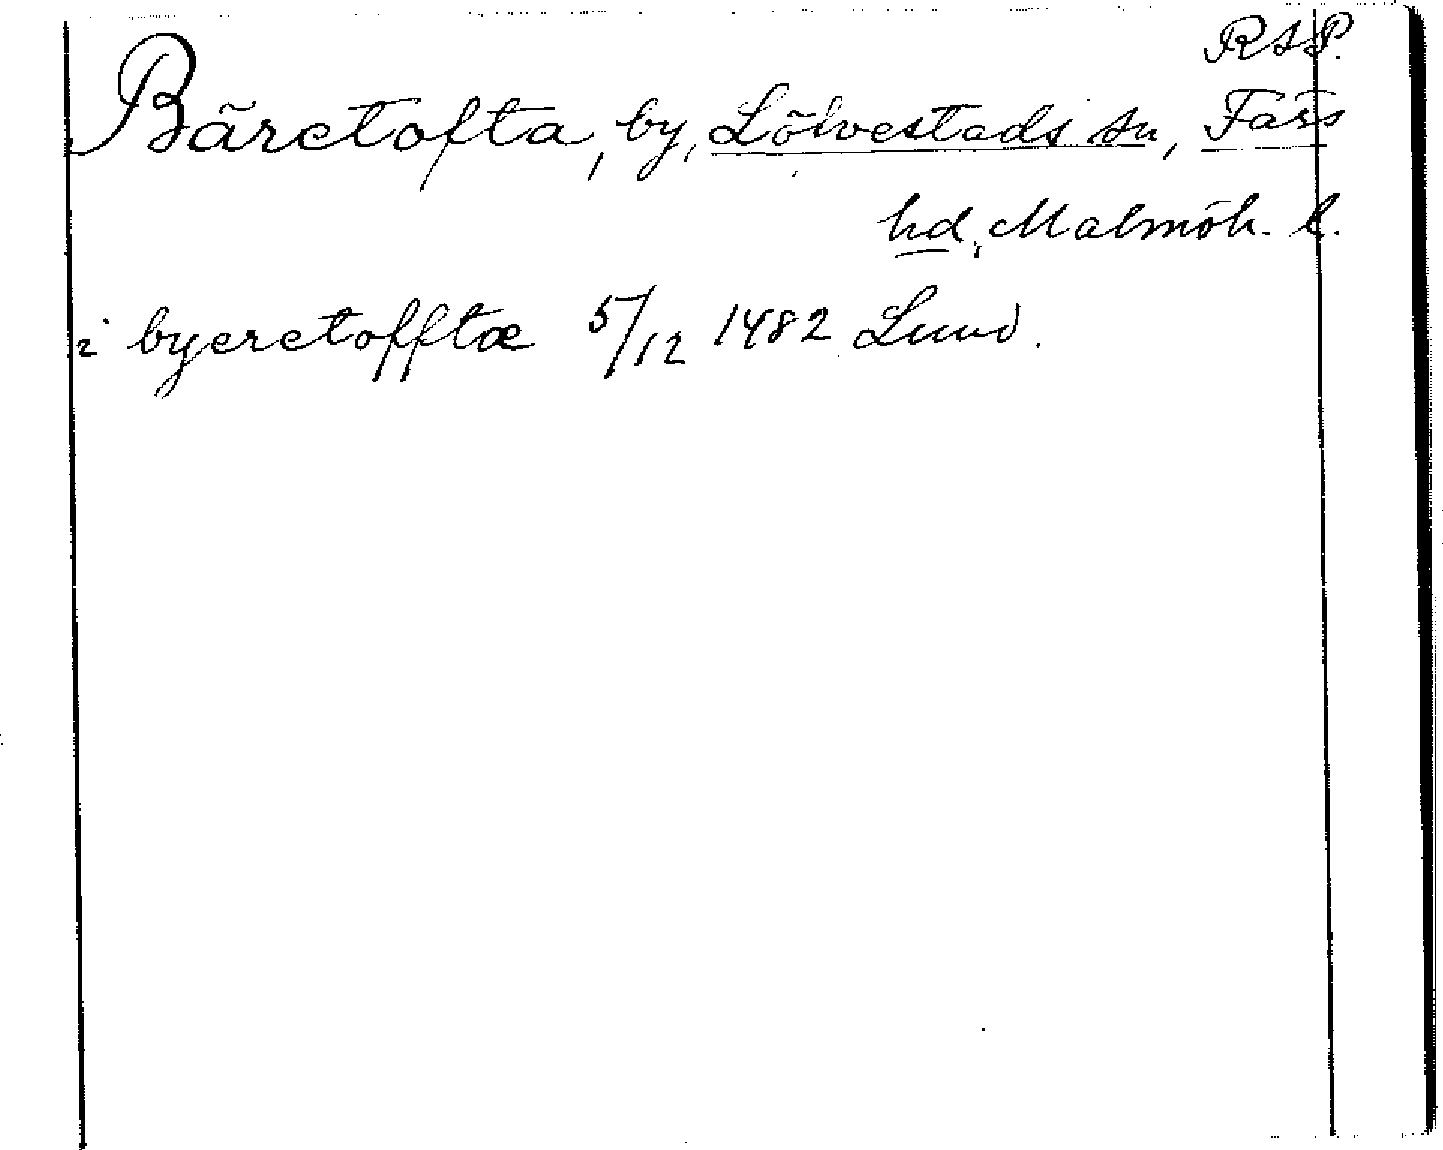 RAP.
Bäretofta, by, Lövestads sn, Färs
hd, Malmöh. l.
i byeretofftæ 5/12 1482 Lund.